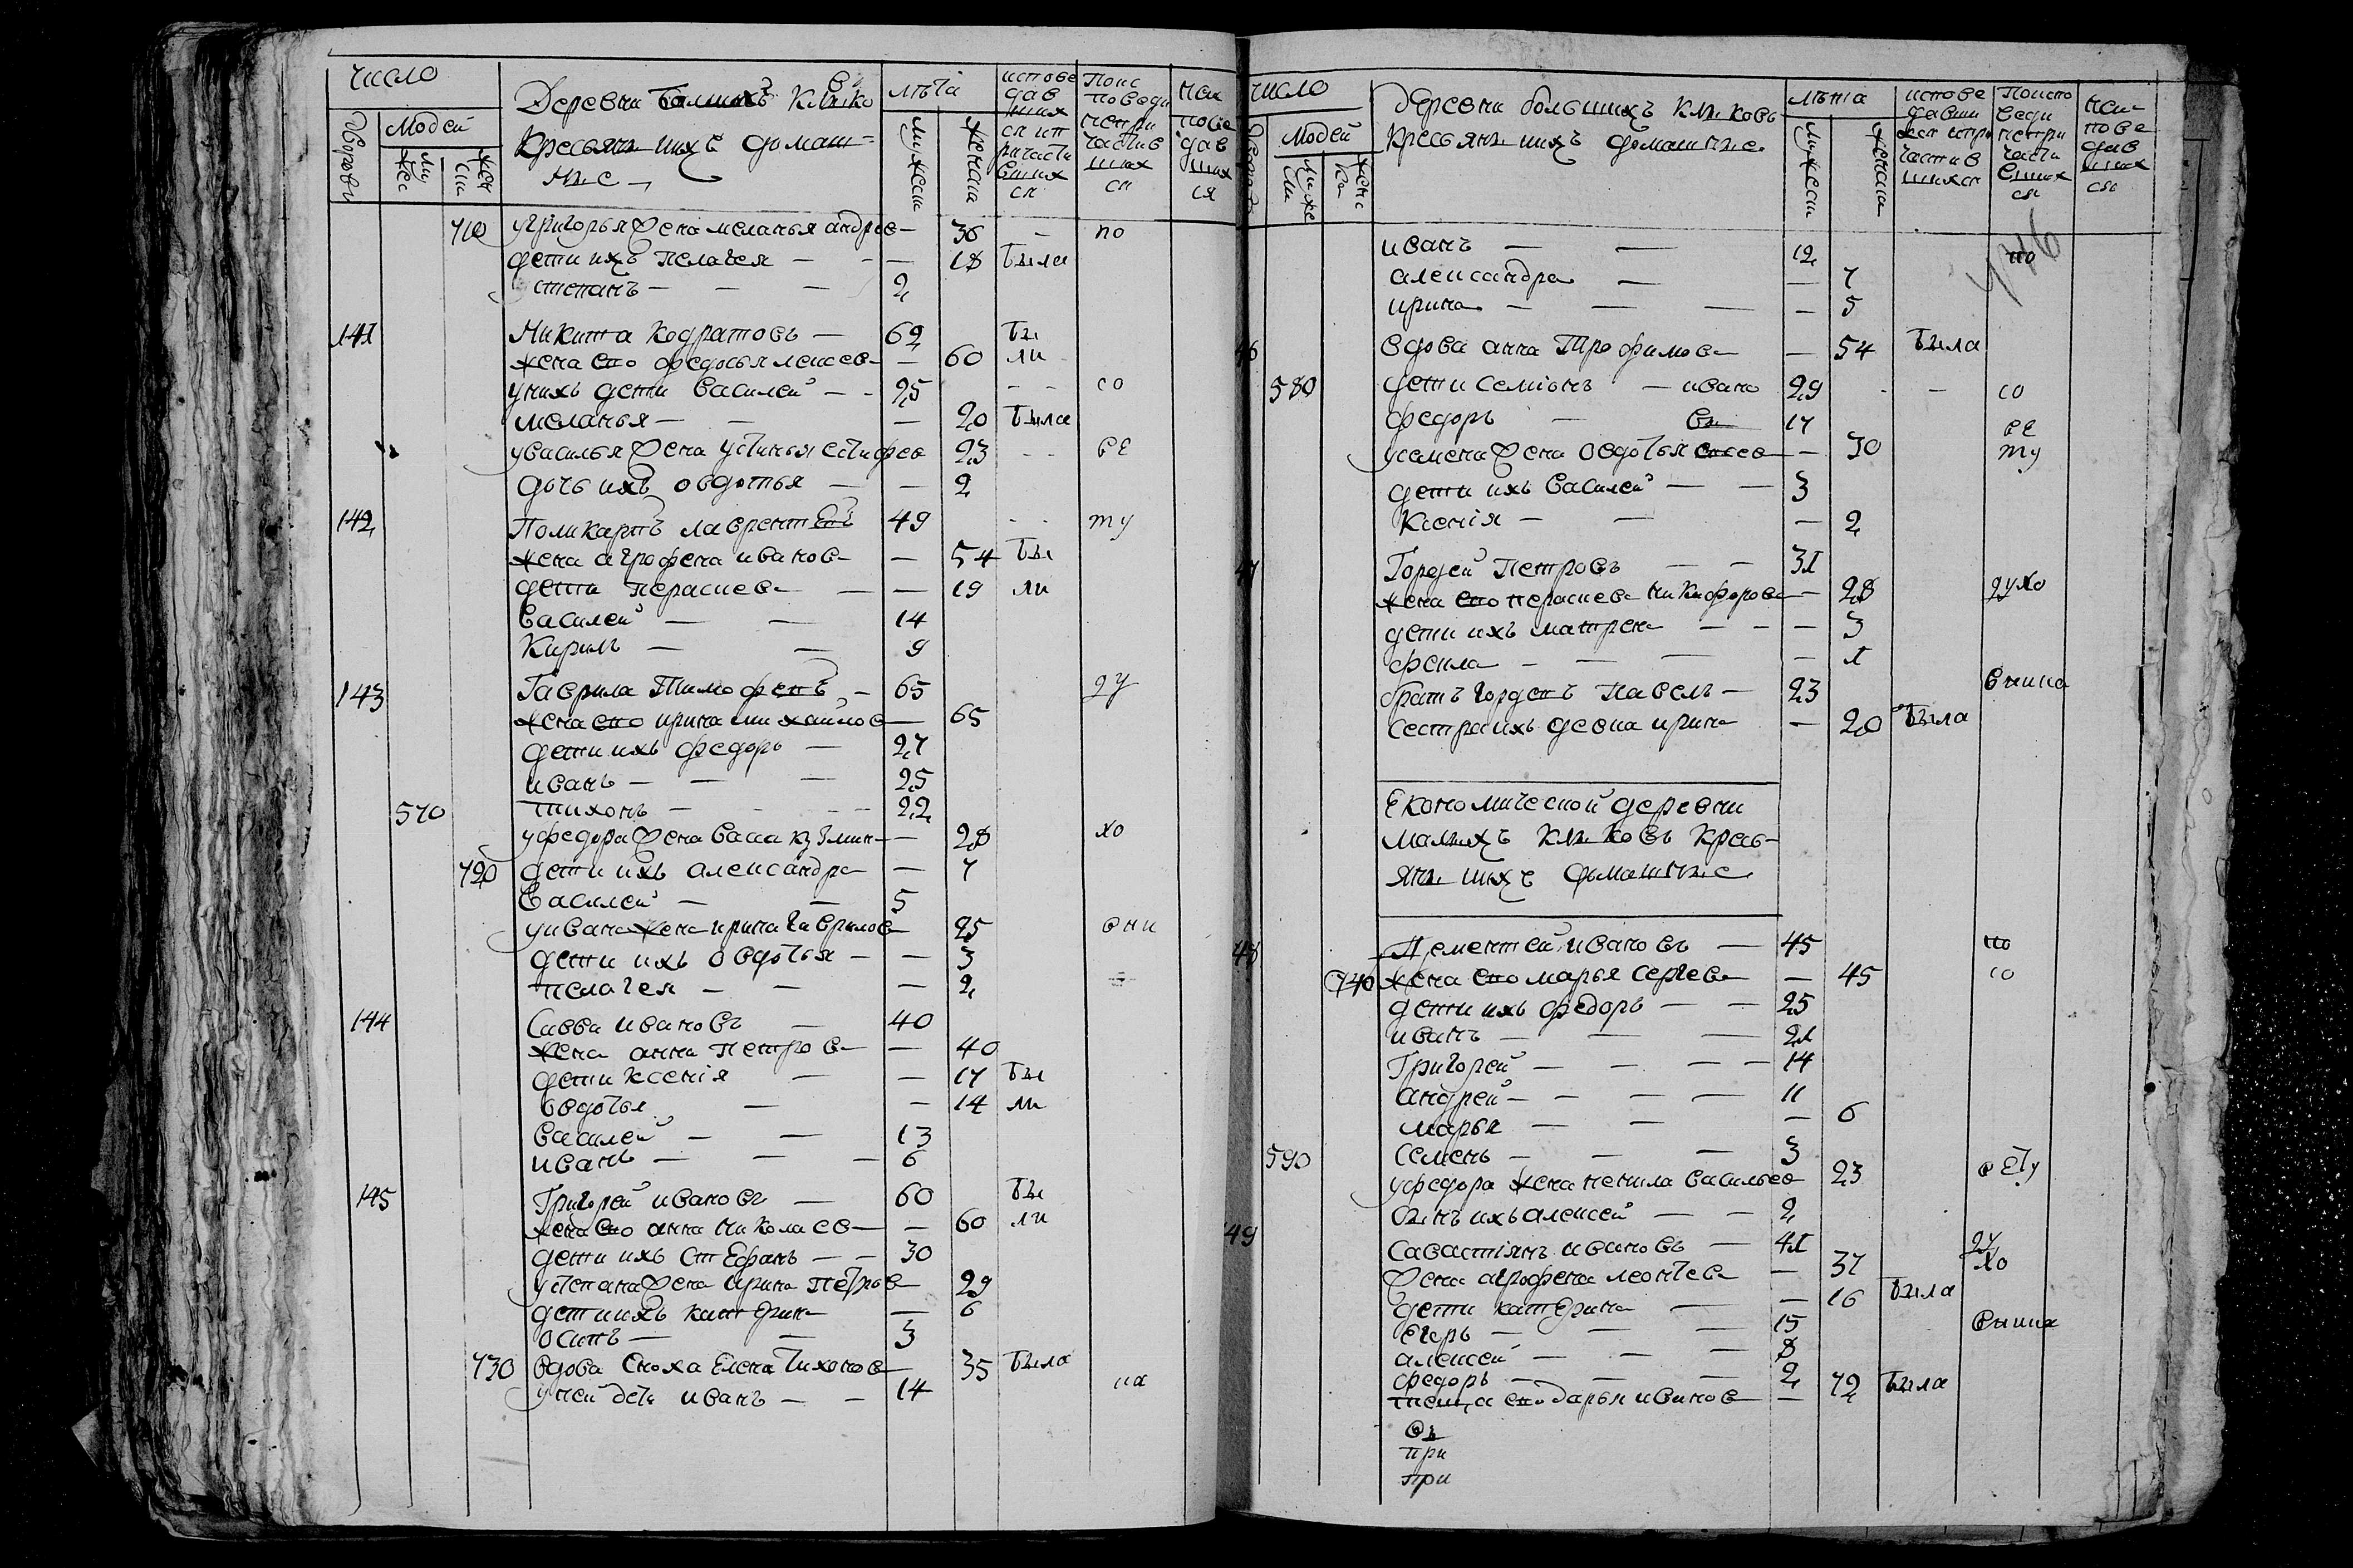 число
Дворовъ
людей
мужес
женски
Деревни Болшихъ Клыковъ
Кресьяня ихъ домаш=
ные
лѣта
мужеска
женска
исповедав шихся и причасти вшихся
Поис поведи непри частив шихся
неи пове дав шихся
710 у Григорья жена меланья андрее — 36 — по
дети ихъ пелагея — — — 18 была
степанъ — — — 2
141 Никита Кодратовъ — 62 бы
жена ево федосья леисев — 60 ли
у нихъ дети василей — — 25 — — со
меланья — — — 20 была
у василья жена устинья естифее 23 — — ве
дочь ихъ овдотья — — 2
142 Поликарпъ лаврентьевъ 49 — — ту
жена агрофена иванов — 54 бы
дети пераскев — — 19 ли
василей — — 14
Кирилъ — — 9
143 Гаврила Тимофеевъ — 65 ду
жена ево ирина михайлов — 65
дети ихъ федоръ — 27
иванъ — — — 25
570 тихонъ — — — 22
у федора жена васа кузмин — 28 хо
720 дети ихъ александра — 7
Василей — — 5
у ивана жена ирина гаврилов 25 вни
дети ихъ овдотья — — 3
пелагея — — — 2
144 Савва ивановъ — 40
жена анна петров — — 40
дети ксенія — — 17 бы
овдотья — — 14 ли
василей — — 13
иванъ — — — 6
145 Григорей ивановъ — 60 бы
жена ево анна николаев — — 60 ли
дети ихъ стефанъ — — 30
у степана жена ирина петров — 29
дети ихъ катерин — 6
осипъ — — 3
730 вдова сноха елена тихонов — 35 была
у ней дети иванъ — — 14 ка
число
людей
мужес
женс
деревни большихъ клыковъ
Кресьяня ихъ домашные
лѣта
мужеска
женска
испове давши хся и при частив шихся
Поиспо веди непри части вшихся
неи пове дав шихся
иванъ — — 12 по
александра — — 7
ирина — — — — 5
46 вдова анна Трофимов — 54 была
580 дети семіонъ — ивано 29 — со
федоръ — вы 17 ве
у семена жена овдотья — 30 ту
дети ихъ василей — — 3
Ксенія — — — 2
47 Гордей Петровъ — — 31
жена ево пераскев никифоров — 28 духо
дети ихъ матрена — — — 3
фекла — — — — 1
братъ гордеевъ Павелъ — 23 вника
сестра ихъ девка ирина — 20 была
Економической деревни
малыхъ клыковъ кресь-
яня ихъ домашные
48 Дементей ивановъ — 45 по
740 жена ево марья сергев — 45 со
дети ихъ федоръ — — 25
иванъ — — — 21
Григорей — — — — 14
андрей — — — — 11
марья — — — 6
590 Семенъ — — — 3
у федора жена некила васильев 23 вету
сынъ ихъ алексей — — 2
49 Савастіянъ ивановъ — 41 ду
жена агрофена леонтев — 37 хо
дети катерина — — 16 была
егоръ — — — 15 вника
алексей — — — 8
федоръ — — — 2
теща ево дарья иванов — 72 была
при
при